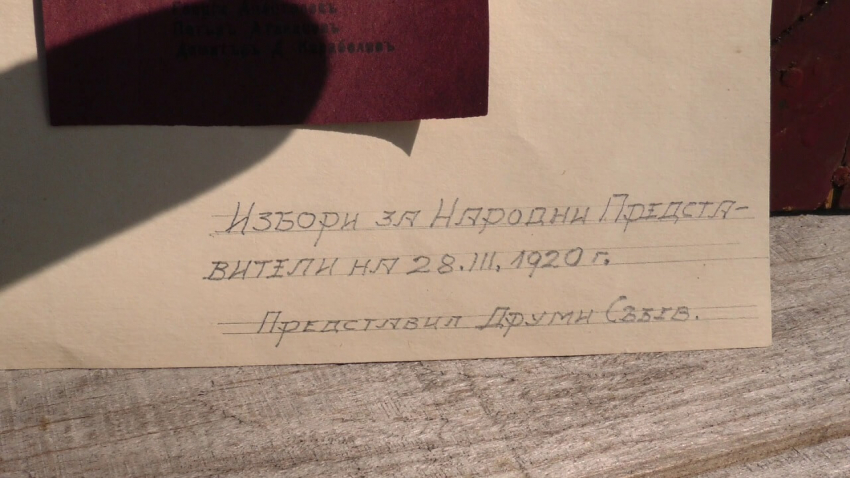 Димитъръ Д.
Избори за Народни Предста-
вители на 28.III.1920 г.
Представил Друми Събев.